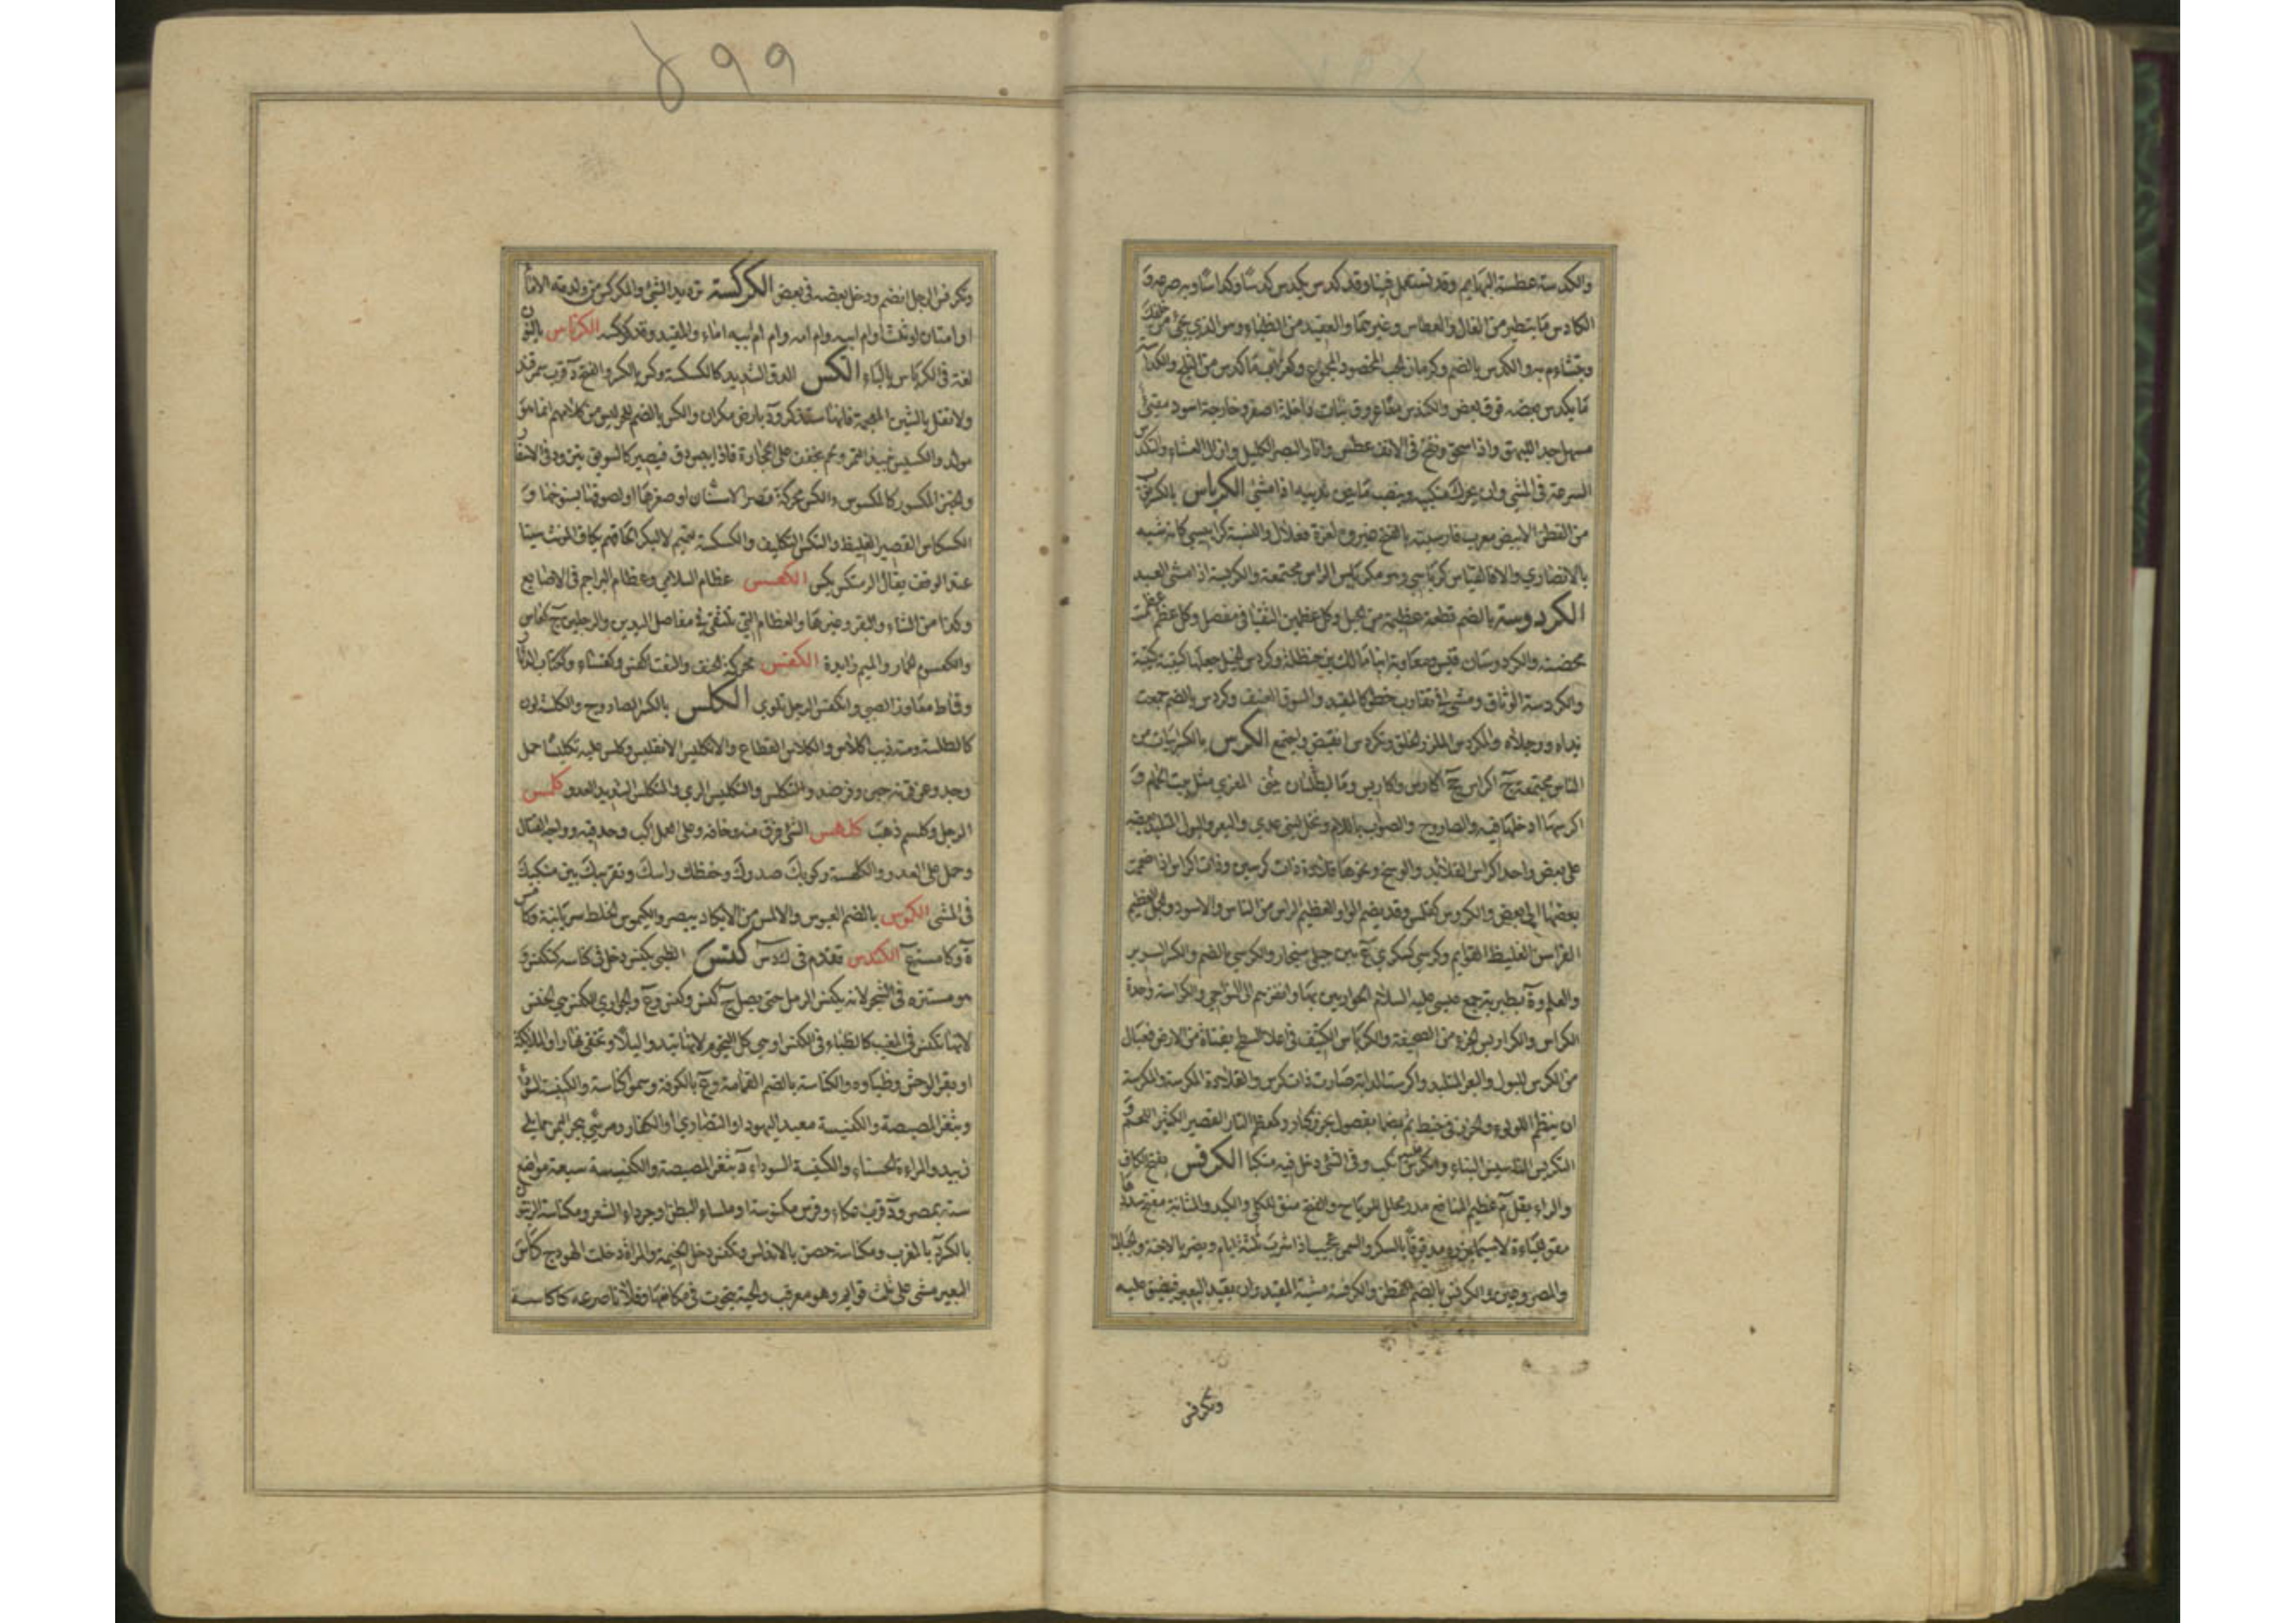 والكدسة عطسة البهائم وقد تستعمل فينا وقد كدس يكدس كدسا وكداسا وبه صرعه و
الكادس ما يتطير من الفال والعطاس وغيرهما والقعيد من الظباء وهو الذي يجيء من خلفك
ويتشاءم به والكدس بالضم وكرمان الحب المحصود المجموع وكغراب ما كدس من الثلج والكداسة
ما يكدس بعضه فوق بعض والكندس عروق نبات داخله اصفر وخارجه اسود مقيئ
مسهل جلاء للبهق واذا سحق ونفخ في الانف عطس وانار البصر الكليل وازال العشاء والتكدس
السرعة في المشي وان يحرك منكبيه وينصب ما بين يديه اذا مشى الكرباس بالكسر ثوب
من القطن الابيض معرب فارسيته بالفتح غيروه لعزة فعلال والنسبة كرابيسي كانه شبه
بالانصاري والا فالقياس كرباسي وهو مكربس الراس مجتمعه والكربسة مشي المقيد
الكردوسة بالضم قطعة عظيمة من الخيل وكل عظمين التقيا في مفصل وكل عظم عظمت
نحضته والكردوسان قيس ومعاوية ابنا مالك بن حنظلة وكردس الخيل جعلها كتيبة كتيبة
والكردسة الوثاق ومشي في تقارب خطو كالمقيد والسوق العنيف وكردس بالضم جمعت
يداه ورجلاه والمكردس الملزز الخلق وتكردس انقبض واجتمع الكرس بالكسر ابيات من
الناس مجتمعة ج اكراس جج اكارس واكاريس وما يبنى لطليان المعزي مثل بيت الحمام و
اكرسها ادخلها فيه والصاروج والصواب باللام ونخل لبني عدي والبعر والبول المتلبد بعضه
على بعض وواحد اكراس القلائد والوشح ونحوها قلادة ذات كرسين وذات اكراس اذا ضممت
بعضها الى بعض والكروس كعملس وقد يضم الواو العظيم الراس من الناس والاسود والجمل العظيم
الفراسن الغليظ القوائم وكرسي كسكري ع بين جبلي سنجار والكرسي بالضم والكسر السرير
والعلم وة بطبرية جمع عيسى عليه السلام الحواريين بها وانفذهم الى النواحي والكراسة واحدة
الكراس والكراريس الجزء من الصحيفة والكرياس الكنيف في اعلى السطح بقناة من الارض فعيال
من الكرس للبول والبعر المتلبد واكرست الدابة صارت ذات كرس والقلادة المكرسة والمكرسة
ان ينظم اللولؤ والخرز في خيط ثم يضما بفصول بخرز كبار وكمعظم التار القصير الكثير اللحم و
التكريس تاسيس البناء وانكرس عليه انكب وفي الشيء دخل فيه منكبا الكرفس بفتح الكاف
والراء بقل م عظيم المنافع مدر محلل للرياح والنفخ منق للكلى والكبد والمثانة مفتح سددها
مقو للباءة لا سيما بزره مدقوقا بالسكر والسمن عجيب اذا شرب ثلثة ايام ويضر بالاجنة والحبالى
والمصروعين والكرفس بالضم القطن والكرفسة مشية المقيد وان يقيد البعير فيضيق عليه
وتكرفس
٥٩٩
وتكرفس الرجل انضم ودخل بعضه في بعض الكركسة ترديد الشيء والمكركس من ولدته الاماء
او امتان او ثلث او ام ابيه وام امه وام ام ام ابيه اماء والمقيد وقد كركسه الكرناس بالنون
لغة في الكرياس بالياء الكس الدق الشديد كالكسكسة وكس بالكسر والفتح د قرب سمرقند
ولا تقل بالشين المعجمة فانها ستذكر ود بارض مكران والكس بالضم للحر ليس من كلامهم انما هو
مولد والكسيس نبيذ التمر ولحم يجفف على الحجارة فاذا يبس دق فيصير كالسويق يتزود في الاسفار
والخبز المكسور كالمكسوس والكس محركة قصر الاسنان او صغرها او لصوقها بسنوخها و
الكسكاس القصير الغليظ والتكسس التكلف والكسكسة لتميم لا لبكر الحاقهم بكاف المونث سينا
عند الوقف يقال اكرمتكس وبكس الكعس عظام السلامي وعظام البراجم في الاصابع
وكذا من الشاء والبقر وغيرها والعظام التي تلتقي في مفاصل اليدين والرجلين ج كعاس
والكعسوم الحمار والميم زايدة الكفس محركة الحنف والنعت اكفس وكفساء وككتاب الدثار
وقماط معاوذ الصبي وانكفس الرجل تلوى الكلس بالكسر الصاروج والكلسة لون
كالطلسة ومنه ذيب اكلس والكلاس القطاع والانكليس الانقليس وكلس عليه تكليسا حمل
وجد وعن قرنه جبن وفر ضد والتكلس والتكليس الري والمتكلس الشديد العدو كلمس
الرجل وكلسم ذهب كلهس الشيء فرق منه وخافه وعلى العمل اكب وجد فيه وواجه القتال
وحمل على العدو والكلهسة ركوبك صدرك وخفظك راسك وتقريبك بين منكبيك
في المشي الكموس بالضم العبوس والاكمس من لا يكاد يبصر والكيموس الخلط سريانية وكامس
ة وكامسة ع الكندس تقدم في ك د س كنس الظبي يكنس دخل في كناسه كتكنس و
هو مستتره في الشجر لانه يكنس الرمل حتى يصل ج كنس وكنس وع والجواري الكنس هي الخنس
لانها تكنس في المغيب كالظباء في الكنس او هي كل النجوم لانها تبدو ليلا وتخفى نهارا او الملائكة
او بقر الوحش وظباوه والكناسة بالضم القمامة وع بالكوفة وسموا كناسة والكنيسة
وبثغر المصيصة والكنيسة معبد اليهود او النصارى او الكفار ومرسى ببحر اليمن مما يلي
زبيد والمراءة الحسناء والكنيسة السوداء د بثغر المصيصة والكنيسة سبعة مواضع
ستة بمصر ود قرب عكاء وفرس مكنوسة ملساء البطن او جرداء الشعر ومكناسة الزيتون
بالكسر د بالمغرب ومكناسة حصن بالاندلس وتكنس دخل الخيمة والمراة دخلت الهودج كاس
البعير مشى على ثلث قوايم وهو معرقب والحية تحوت في مكانها وفلانا صرعه كاكاسه